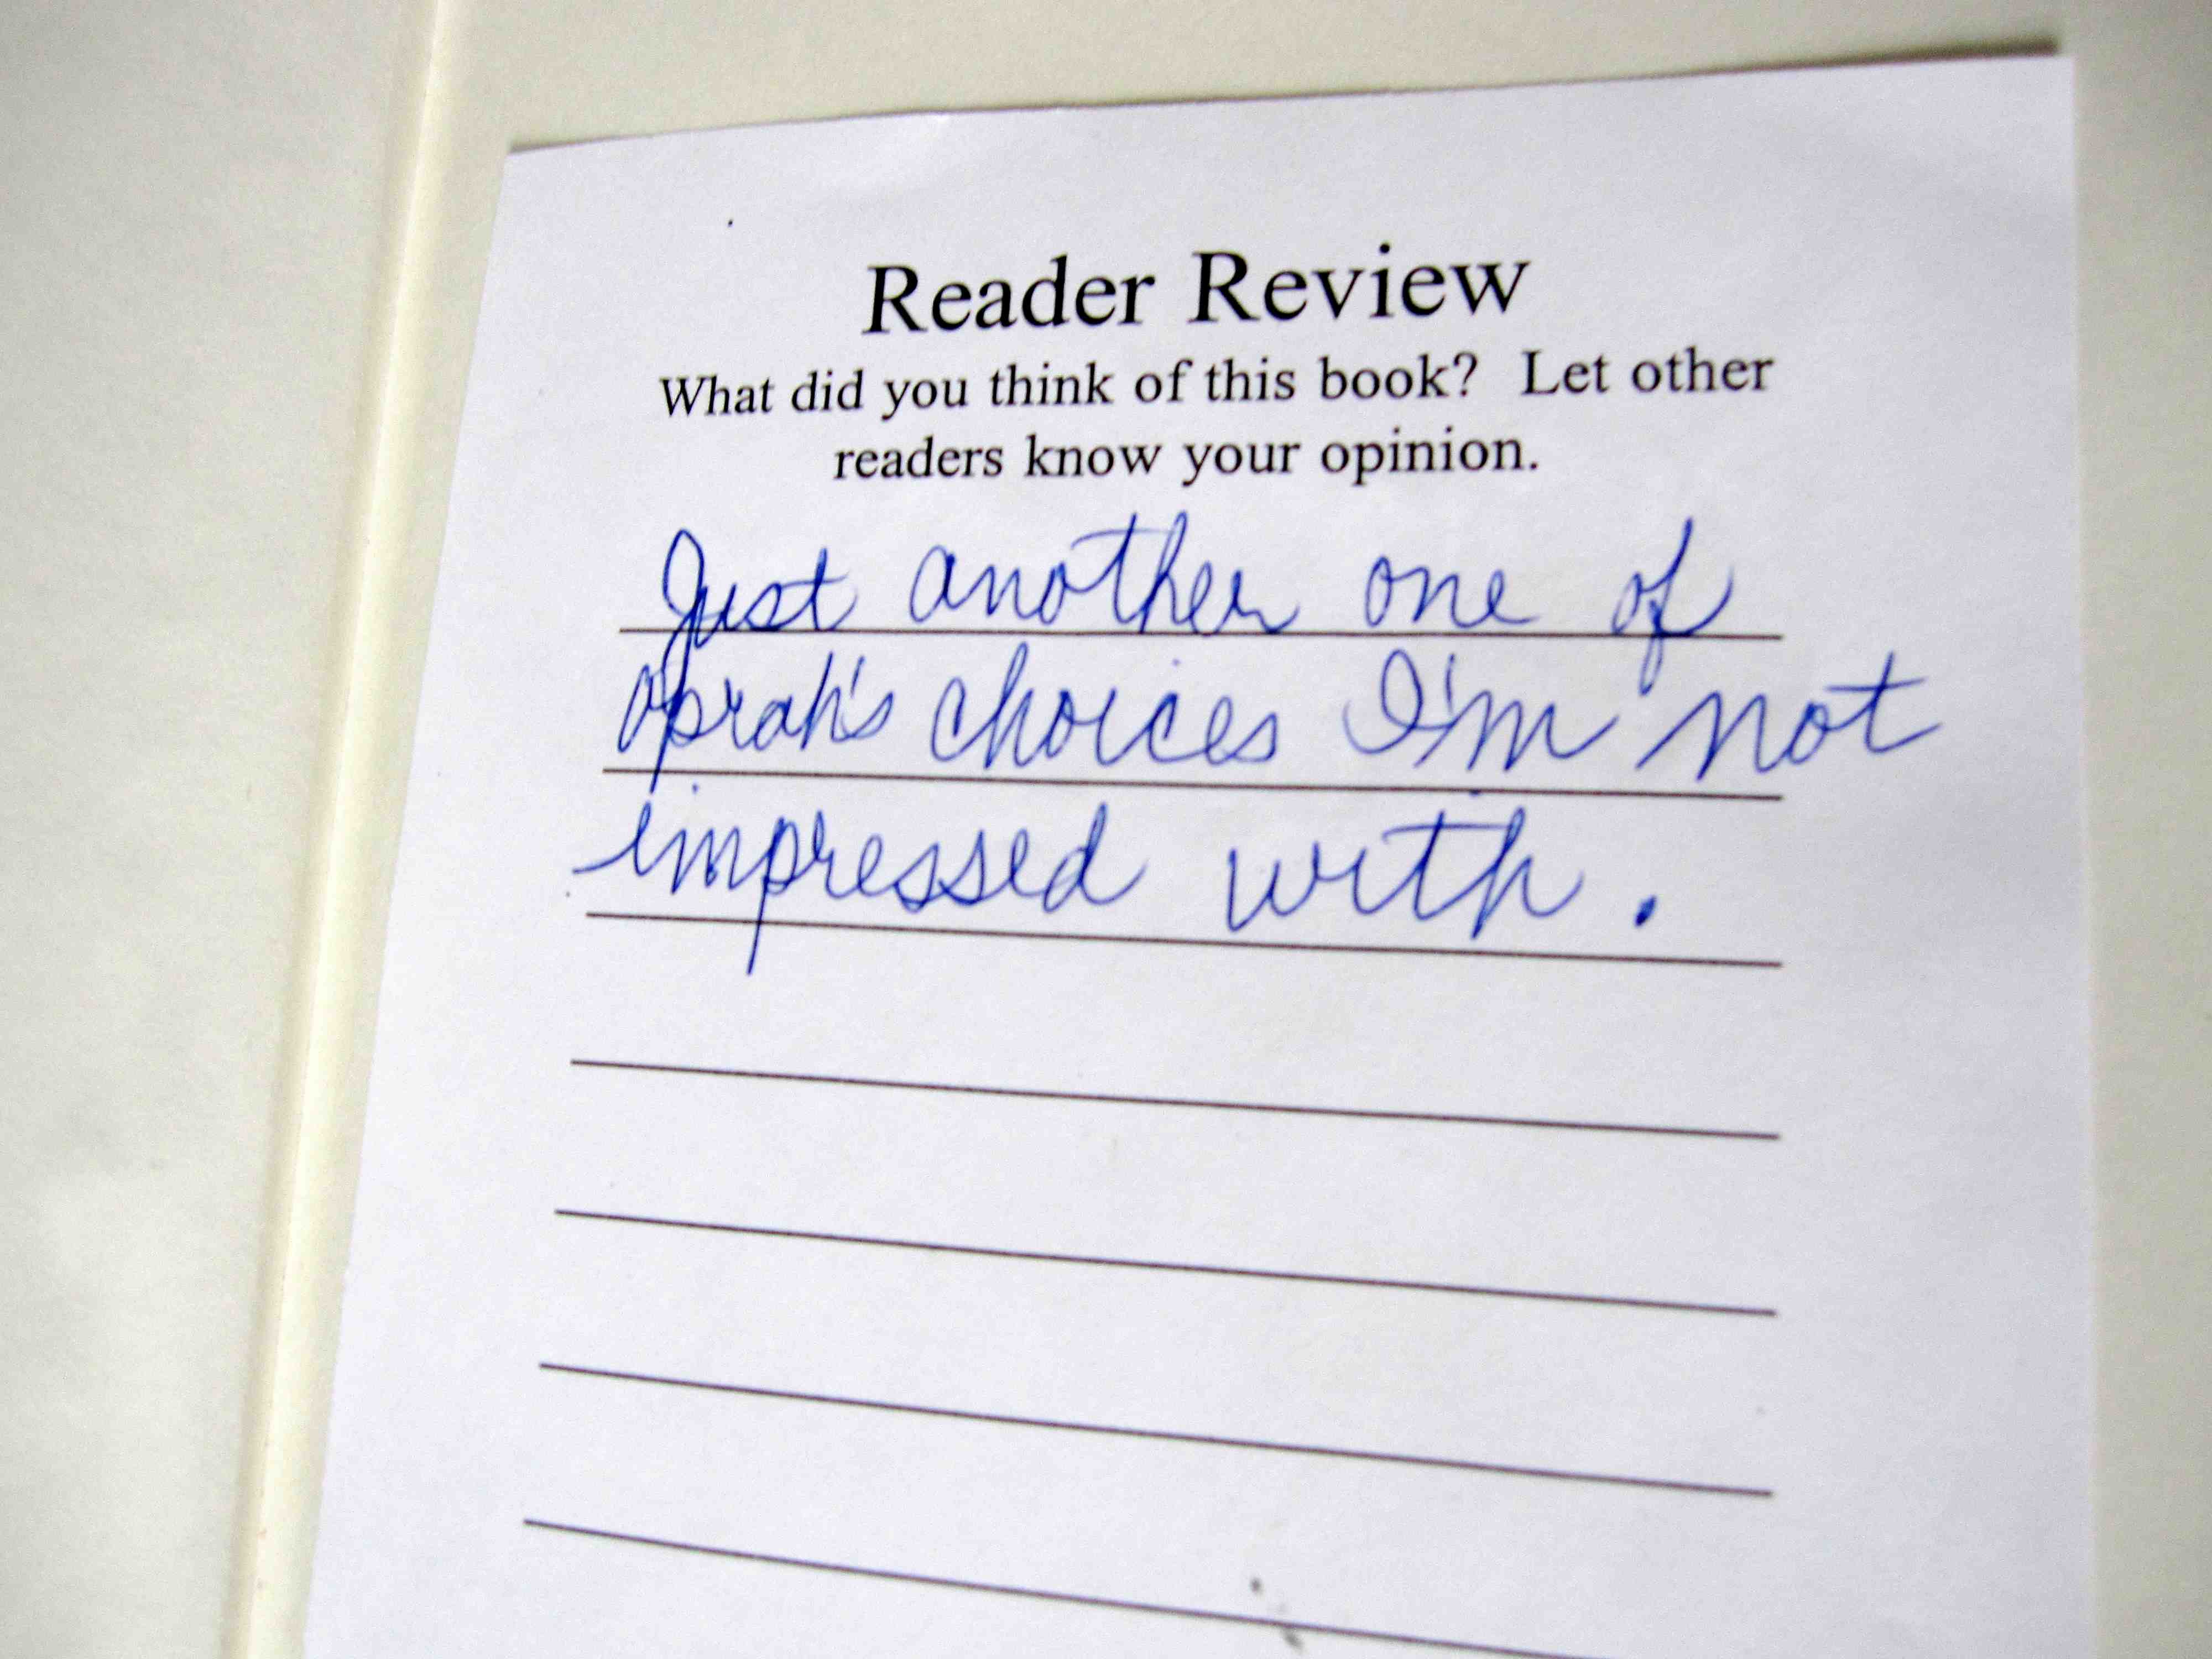 Reader Review
What did you think of this book? Let other
readers know your opinion.
Just another one of
Oprah's choices I'm not
impressed with.